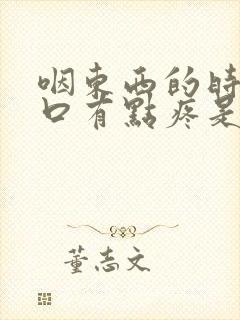 咽東西的時
口有點疼是
董志文